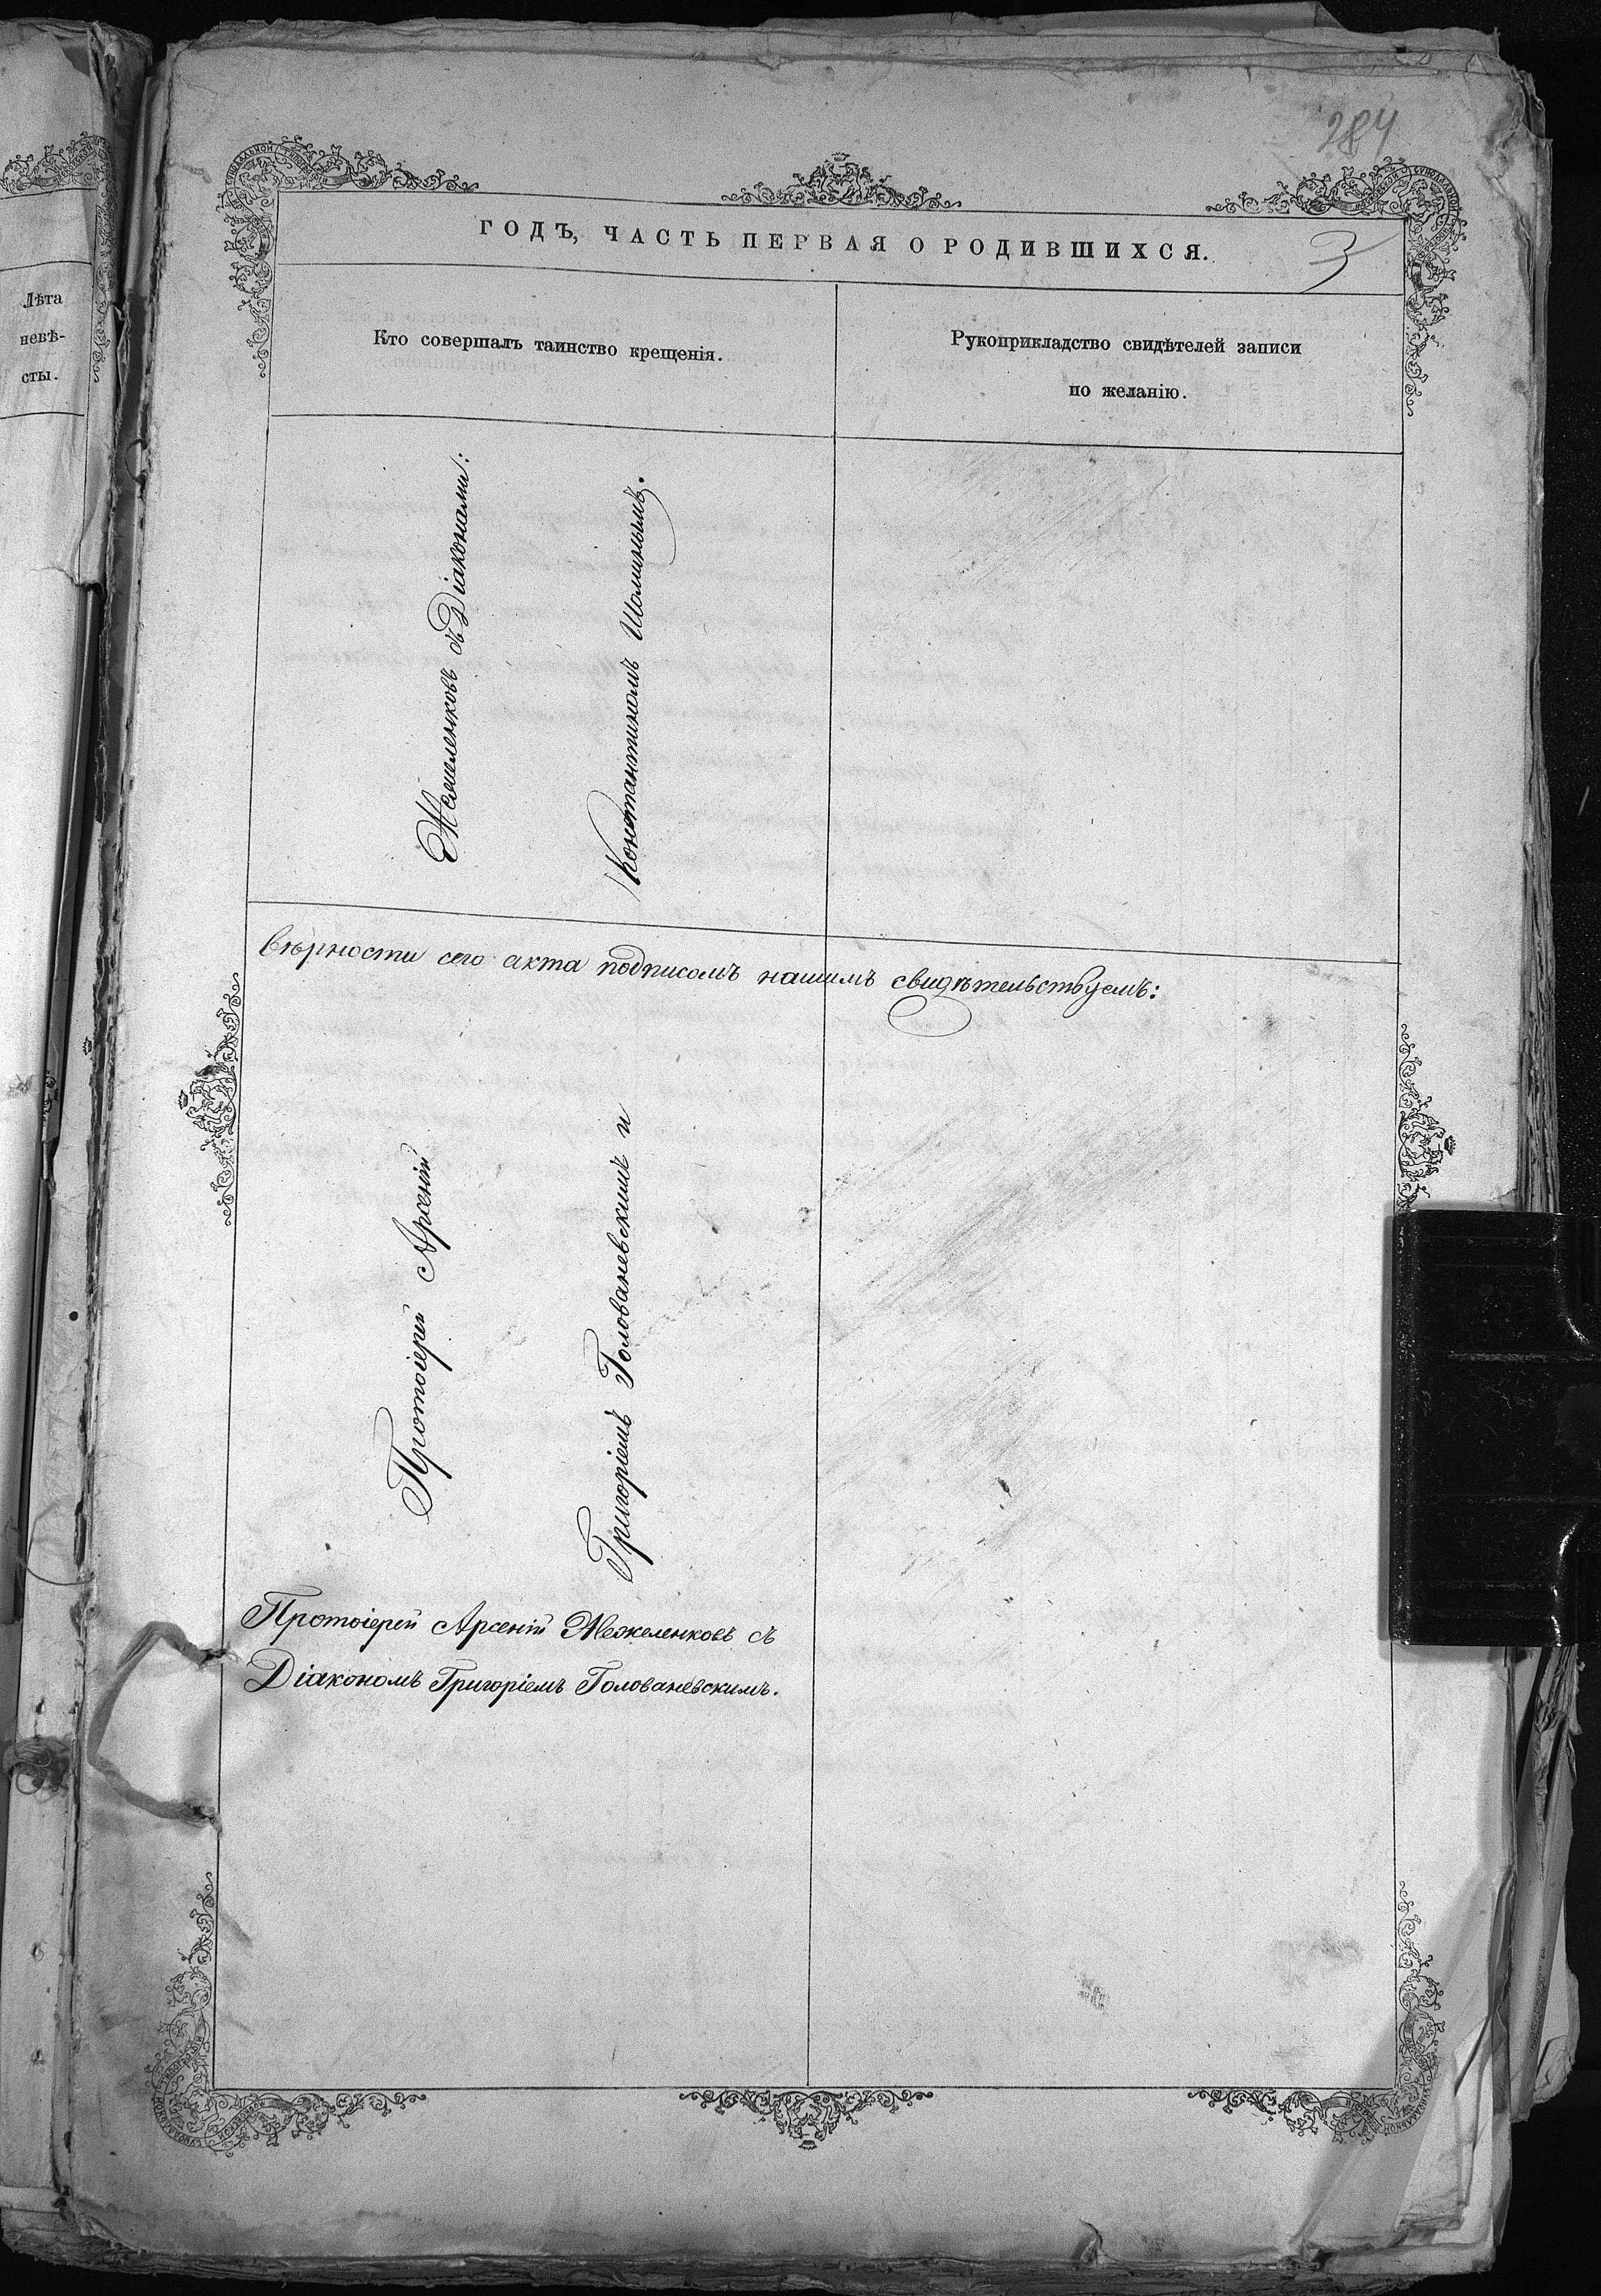 284
ГОДЪ, ЧАСТЬ ПЕРВАЯ О РОДИВШИХСЯ.
3
Лѣта
невѣ-
сты.
Кто совершалъ таинство крещенія.
Рукоприкладство свидѣтелей записи
по желанію.
Протоіерей Арсеній Межеленковъ съ Діаконами:
Григоріемъ Голованевскимъ и Константиномъ Шолинымъ.
вѣрности сего акта подписомъ нашимъ свидѣтельствуемъ:
Протоіерей Арсеній Межеленковъ съ
Діакономъ Григоріемъ Голованевскимъ.